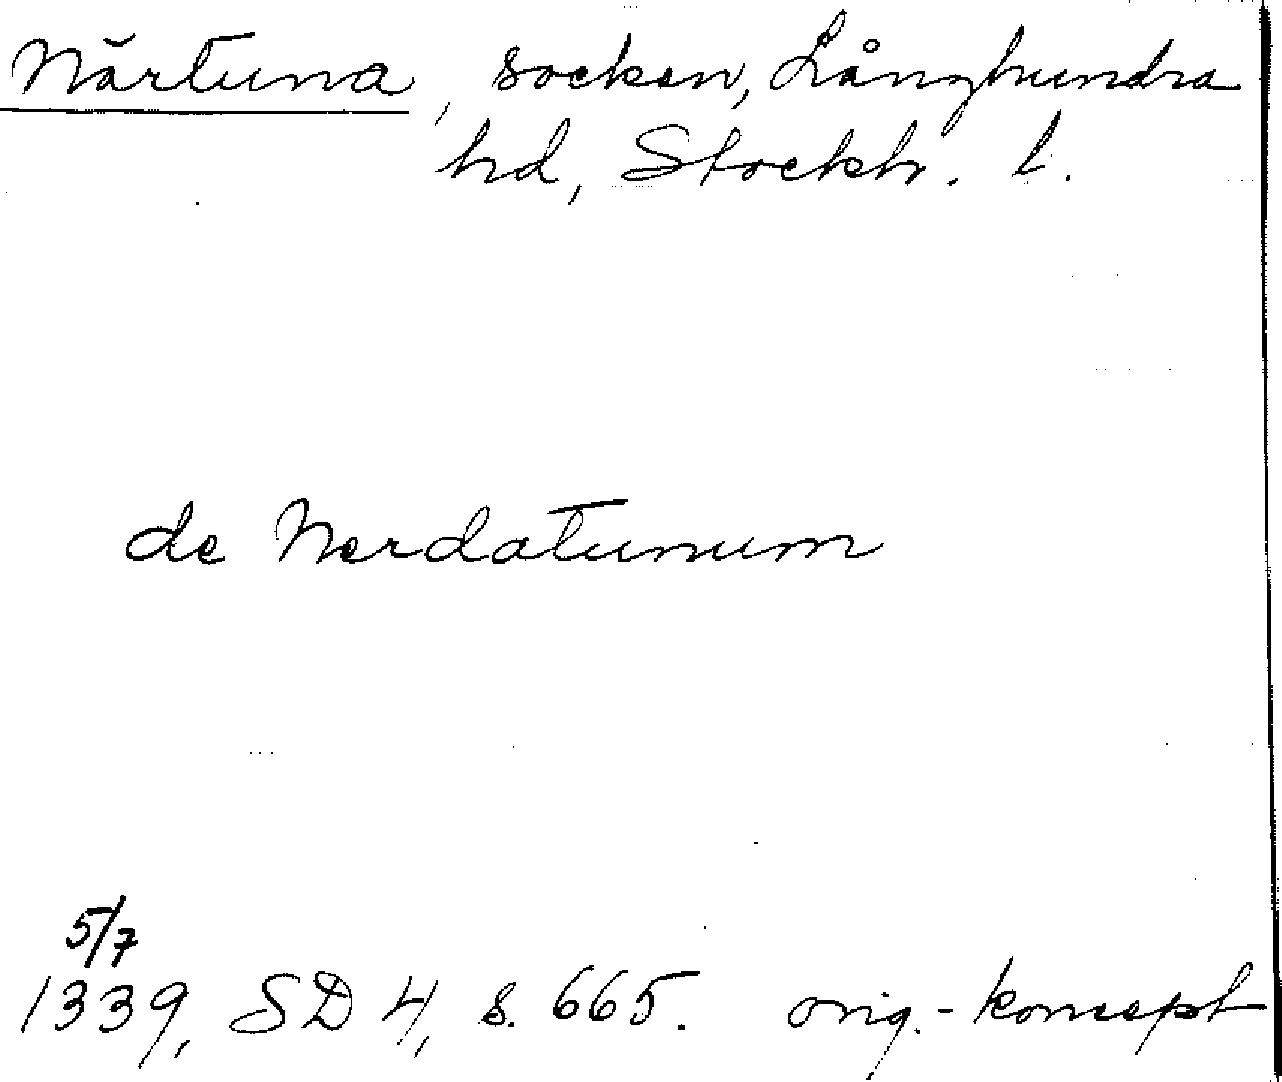 Närtuna, socken, Långhundra
hd, Stockh. l.
de Nerdatunum
5/7
1339, SD 4, s. 665. orig.-koncept